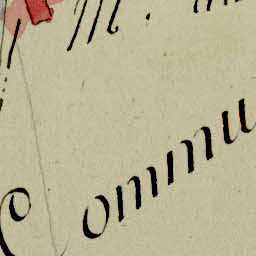 M.
Commu